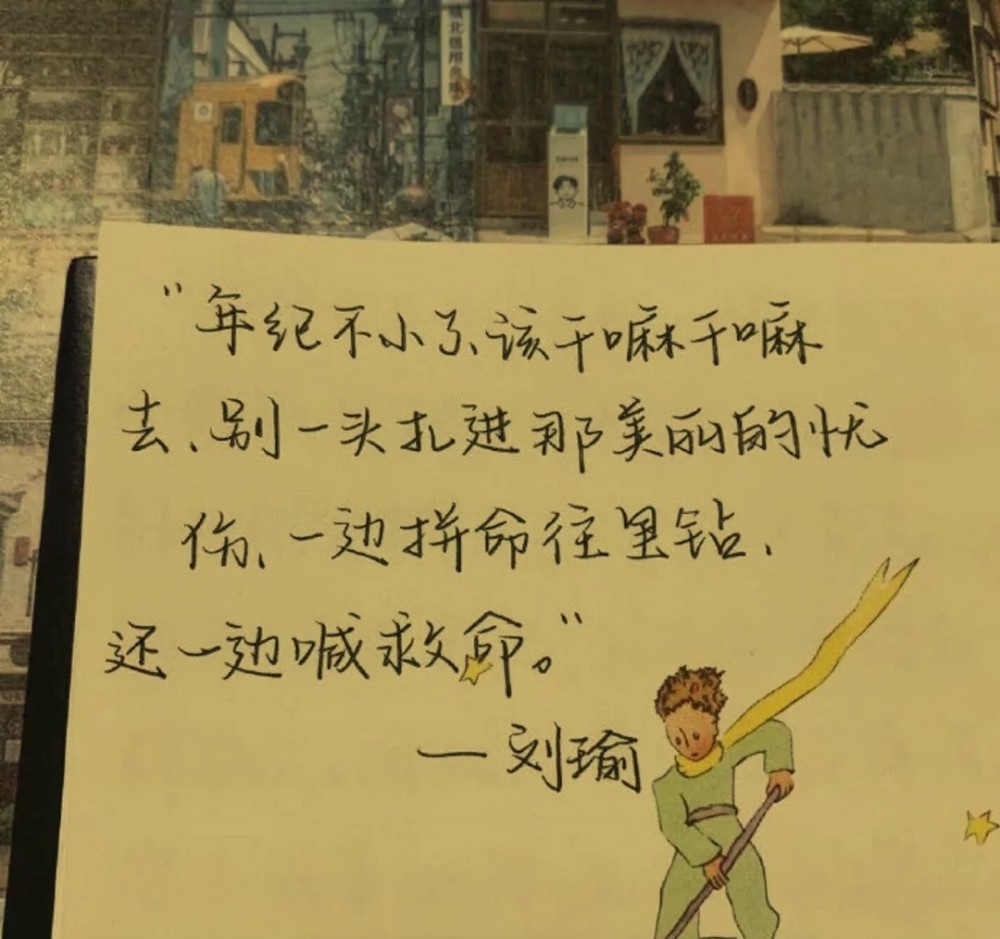 “年纪不小了、该干嘛干嘛
去、别一头扎进那美丽的忧
伤、一边拼命往里钻、
还一边喊救命。”
— 刘瑜